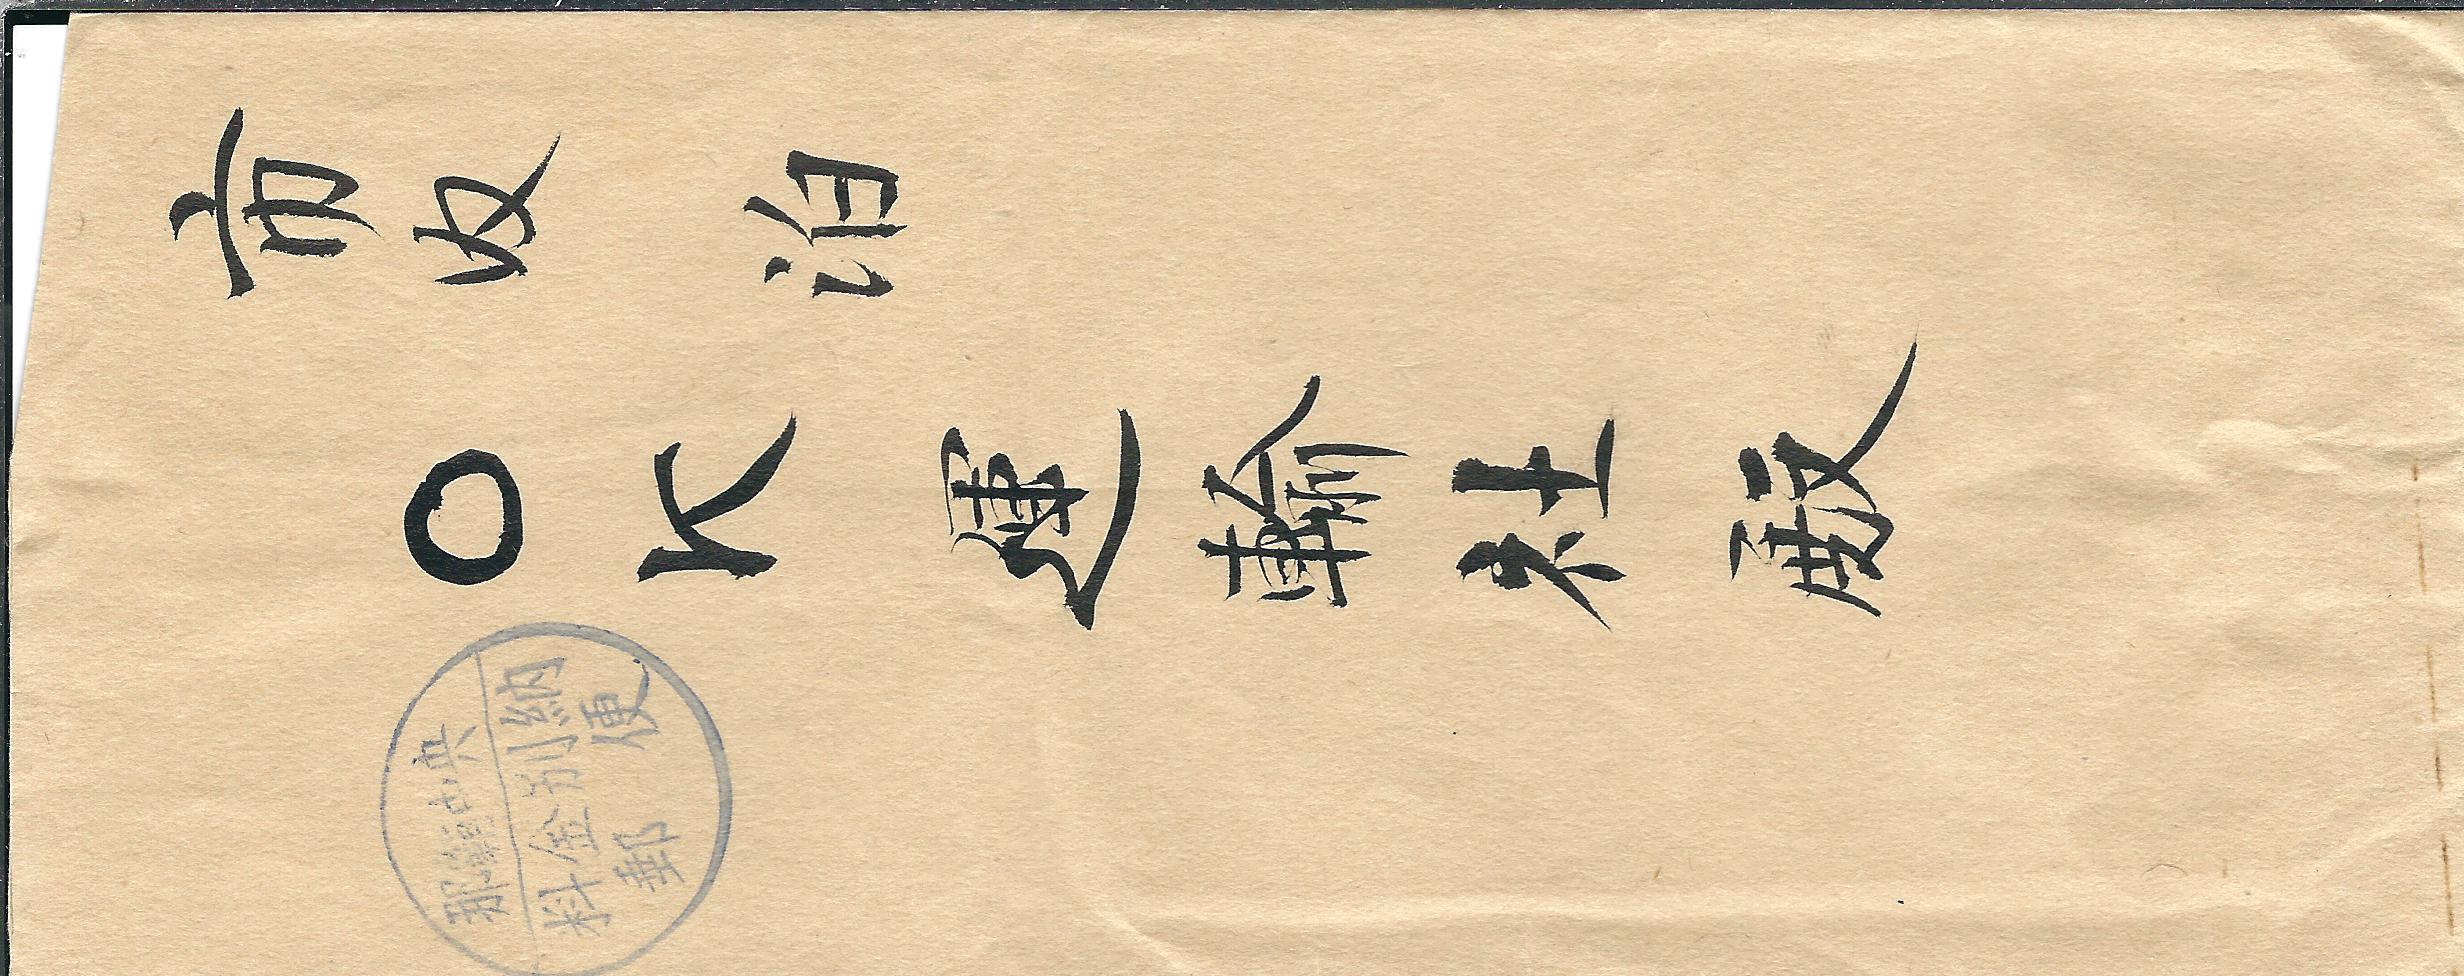 市収 泊
OK運輸社 殿
那覇中央
料金別納
郵便